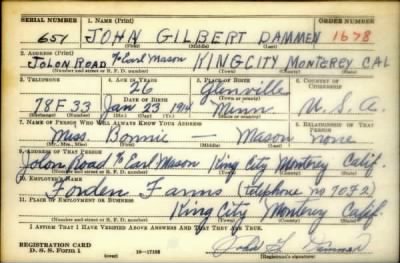 SERIAL NUMBER 1. NAME (Print) ORDER NUMBER
651 JOHN GILBERT DAMMEN 1678
(First) (Middle) (Last)
2. ADDRESS (Print)
JOLON ROAD % Earl Mason KING CITY MONTEREY CAL
(Number and street or R. F. D. number) (Town) (County) (State)
3. TELEPHONE 4. AGE IN YEARS 5. PLACE OF BIRTH 6. COUNTRY OF CITIZENSHIP
26 Glenville
DATE OF BIRTH
78F33 Jan 23 1914 Minn U. S. A.
7. NAME OF PERSON WHO WILL ALWAYS KNOW YOUR ADDRESS 8. RELATIONSHIP OF THAT PERSON
Miss. Bonnie — Mason none
(Mr., Mrs., Miss) (First) (Middle) (Last)
9. ADDRESS OF THAT PERSON
Jolon Road % Earl Mason King City Monterey Calif.
(Number and street or R. F. D. number) (Town) (County) (State)
10. EMPLOYER'S NAME
Forden Farms (telephone no 70F2)
11. PLACE OF EMPLOYMENT OR BUSINESS
King City Monterey Calif.
(Number and street or R. F. D. number) (Town) (County) (State)
I AFFIRM THAT I HAVE VERIFIED ABOVE ANSWERS AND THAT THEY ARE TRUE.
REGISTRATION CARD
D. S. S. Form 1 (over) John G. Dammen
(Registrant's signature)